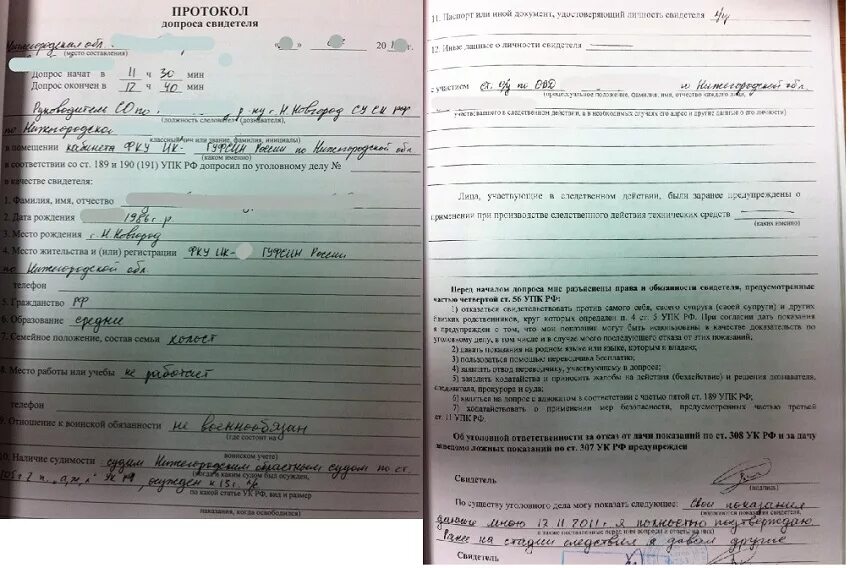 ПРОТОКОЛ
допроса свидетеля
Нижегородская обл.
(место составления)
20 г.
Допрос начат в 11 ч 30 мин
Допрос окончен в 12 ч 40 мин
Руководитель СО по р-ну г. Н. Новгород СУ СК РФ
(должность следователя (дознавателя),
по Нижегородской
классный чин или звание, фамилия, инициалы)
в помещении кабинета ФКУ ИК- ГУФСИН России по Нижегородской обл.
(каком именно)
в соответствии со ст. 189 и 190 (191) УПК РФ допросил по уголовному делу №
в качестве свидетеля:
1. Фамилия, имя, отчество
2. Дата рождения 1986 г.р.
3. Место рождения г. Н. Новгород
4. Место жительства и (или) регистрации ФКУ ИК- ГУФСИН России
по Нижегородской обл.
телефон
5. Гражданство РФ
6. Образование среднее
7. Семейное положение, состав семьи холост
8. Место работы или учебы не работает
телефон
9. Отношение к воинской обязанности не военнообязан
(где состоит на
воинском учете)
10. Наличие судимости судим Нижегородским областным судом по ст.
(когда и каким судом был осужден,
105 ч. 2 п. УК РФ, осужден к 15 г.
по какой статье УК РФ, вид и размер
наказания, когда освободился)
11. Паспорт или иной документ, удостоверяющий личность свидетеля
12. Иные данные о личности свидетеля
с участием ст. о/у по ОВД Нижегородской обл.
(процессуальное положение, фамилия, имя, отчество каждого лица,
участвовавшего в следственном действии, а в необходимых случаях его адрес и другие данные о его личности)
Лица, участвующие в следственном действии, были заранее предупреждены о
применении при производстве следственного действия технических средств
(каких именно)
Перед началом допроса мне разъяснены права и обязанности свидетеля, предусмотренные
частью четвертой ст. 56 УПК РФ:
1) отказаться свидетельствовать против самого себя, своего супруга (своей супруги) и других
близких родственников, круг которых определен п. 4 ст. 5 УПК РФ. При согласии дать показания
я предупрежден о том, что мои показания могут быть использованы в качестве доказательств по
уголовному делу, в том числе и в случае моего последующего отказа от этих показаний;
2) давать показания на родном языке или языке, которым я владею;
3) пользоваться помощью переводчика бесплатно;
4) заявлять отвод переводчику, участвующему в допросе;
5) заявлять ходатайства и приносить жалобы на действия (бездействие) и решения дознавателя,
следователя, прокурора и суда;
6) являться на допрос с адвокатом в соответствии с частью пятой ст. 189 УПК РФ;
7) ходатайствовать о применении мер безопасности, предусмотренных частью третьей
ст. 11 УПК РФ.
Об уголовной ответственности за отказ от дачи показаний по ст. 308 УК РФ и за дачу
заведомо ложных показаний по ст. 307 УК РФ предупрежден
Свидетель
(подпись)
По существу уголовного дела могу показать следующее: Свои показания
(излагаются показания свидетеля,
данные мною 17.11.2011 г. я полностью подтверждаю.
а также поставленные перед ним вопросы и ответы на них)
Ранее на стадии следствия я давал другие
Свидетель